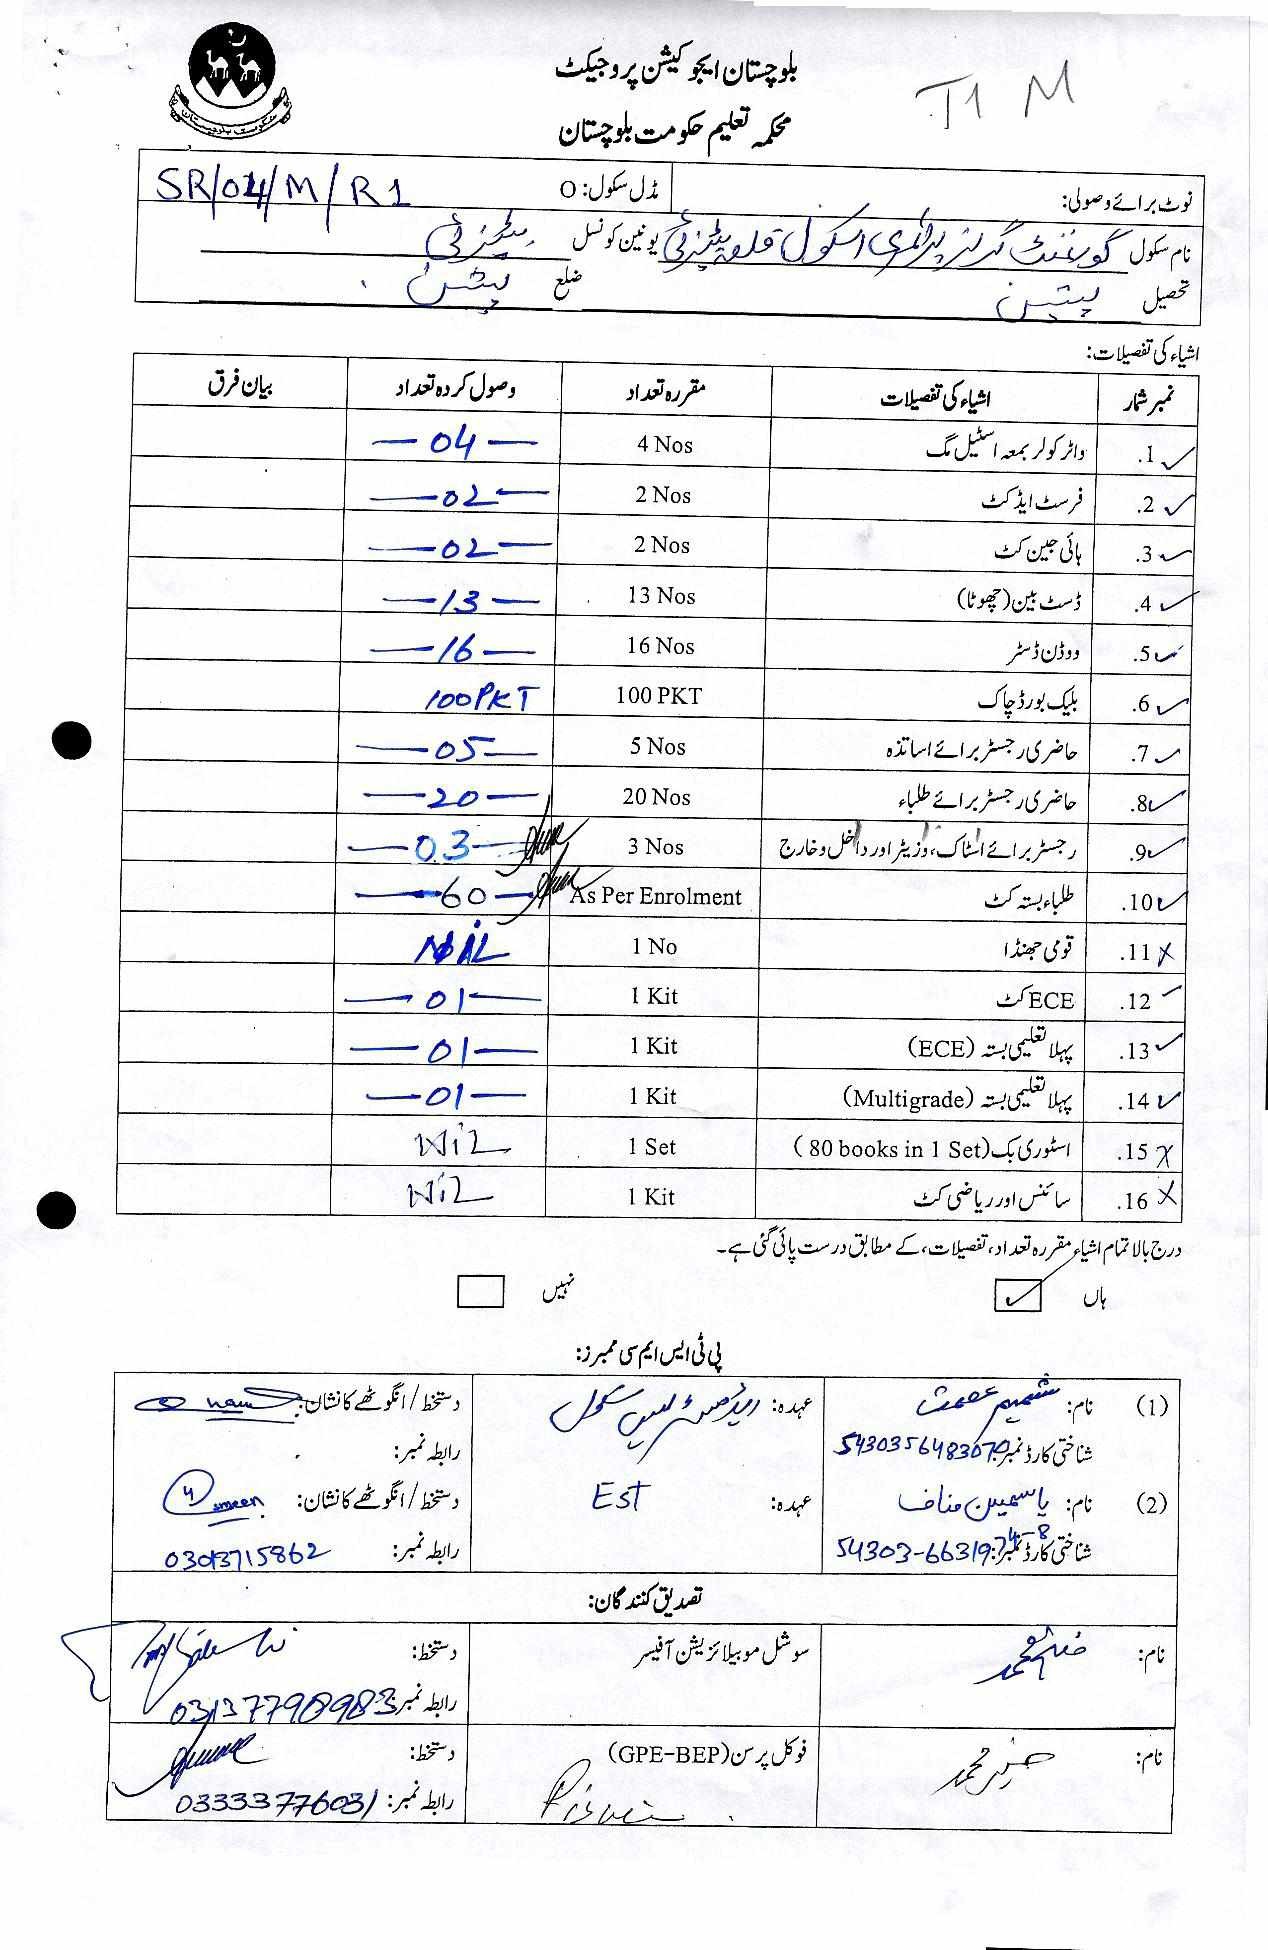 بلوچستان ایجوکیشن پروجیکٹ
T1 M
محکمہ تعلیم حکومت بلوچستان
حکومت بلوچستان
نوٹ برائے وصولی: مڈل سکول: O SR/04/M/R1
نام سکول گورنمنٹ گرلز پرائمری اسکول قلعہ بٹیزئی یونین کونسل بٹیزئی
تحصیل پشین ضلع پشین
اشیاء کی تفصیلات:
نمبر شمار اشیاء کی تفصیلات مقررہ تعداد وصول کردہ تعداد بیان فرق
1. واٹر کولر بمعہ اسٹیل مگ 4 Nos 04
2. فرسٹ ایڈ کٹ 2 Nos 02
3. ہائی جین کٹ 2 Nos 02
4. ڈسٹ بین (چھوٹا) 13 Nos 13
5. ووڈن ڈسٹر 16 Nos 16
6. بلیک بورڈ چاک 100 PKT 100 PKT
7. حاضری رجسٹر برائے اساتذہ 5 Nos 05
8. حاضری رجسٹر برائے طلباء 20 Nos 20
9. رجسٹر برائے اسٹاک، وزیٹر اور داخل و خارج 3 Nos 03
10. طلباء بستہ کٹ As Per Enrolment 60
11. قومی جھنڈا 1 No NIL
12. ECE کٹ 1 Kit 01
13. پہلا تعلیمی بستہ (ECE) 1 Kit 01
14. پہلا تعلیمی بستہ (Multigrade) 1 Kit 01
15. اسٹوری بک (80 books in 1 Set) 1 Set NiL
16. سائنس اور ریاضی کٹ 1 Kit NiL
درج بالا تمام اشیاء مقررہ تعداد، تفصیلات، کے مطابق درست پائی گئی ہے۔
ہاں نہیں
پی ٹی ایس ایم سی ممبرز:
(1) نام: شمیم عصمت عہدہ: ہیڈ مسٹریس سکول دستخط / انگوٹھے کا نشان:
شناختی کارڈ نمبر: رابطہ نمبر:
(2) نام: یاسمین مناف عہدہ: Est دستخط / انگوٹھے کا نشان: Yasmeen
شناختی کارڈ نمبر: 54303-6631974-8 رابطہ نمبر: 03013715862
تصدیق کنندگان:
نام: سوشل موبیلائزیشن آفیسر دستخط:
رابطہ نمبر: 03137798983
نام: فوکل پرسن (GPE-BEP) دستخط:
Pishin رابطہ نمبر: 03333776031